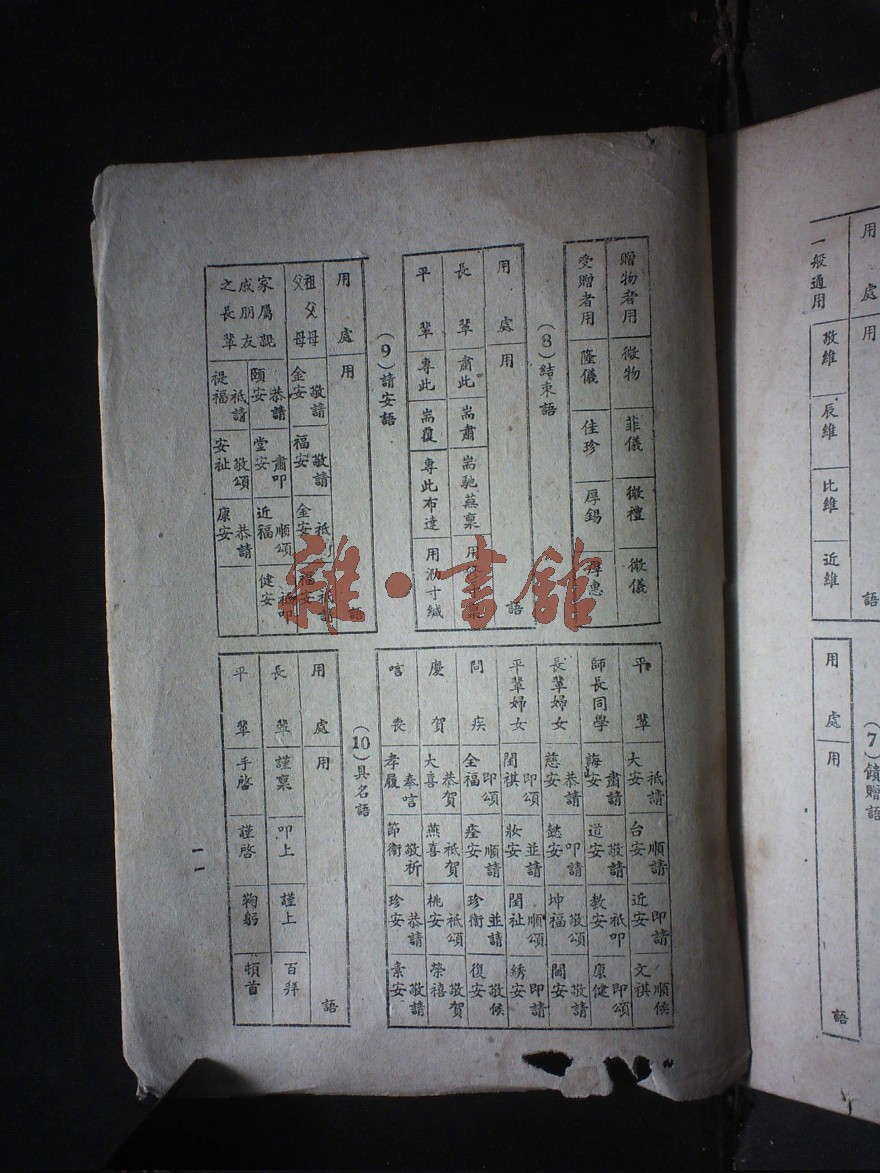 一般通用 敬維 辰維 比維 近維
用處 用 語
(7)饋贈語
用處 用 語
贈物者用 微物 菲儀 微禮 微儀
受贈者用 隆儀 佳珍 厚錫 厚惠
(8)結束語
用處 用 語
長輩 肅此 耑肅 耑馳蕪稟
平輩 專此 耑覆 專此布達 用泐寸緘
(9)請安語
用處 用 語
祖父母父母 敬請金安 敬請福安 金安 福安
家屬親戚朋友之長輩 恭請頤安 肅叩堂安 順頌近福 祇叩健安
祇請禔福 敬頌安祉 恭請康安
平輩 祇請大安 順請台安 即請近安 順候文祺
師長同學 肅請誨安 敬請道安 祇叩教安 即頌康健
長輩婦女 恭請慈安 叩請懿安 敬頌坤福 敬請閫安
平輩婦女 即頌閨祺 並請妝安 順頌閨祉 即請綉安
問疾 即頌全福 順請痊安 並請珍衛 敬候復安
慶賀 恭賀大喜 祇賀燕喜 祇頌桃安 敬賀榮禧
唁喪 奉唁孝履 敬祈節衛 恭請珍安 敬請素安
(10)具名語
用處 用 語
長輩 謹稟 叩上 謹上 百拜
平輩 手啓 謹啓 鞠躬 頓首
一一
雜·書館